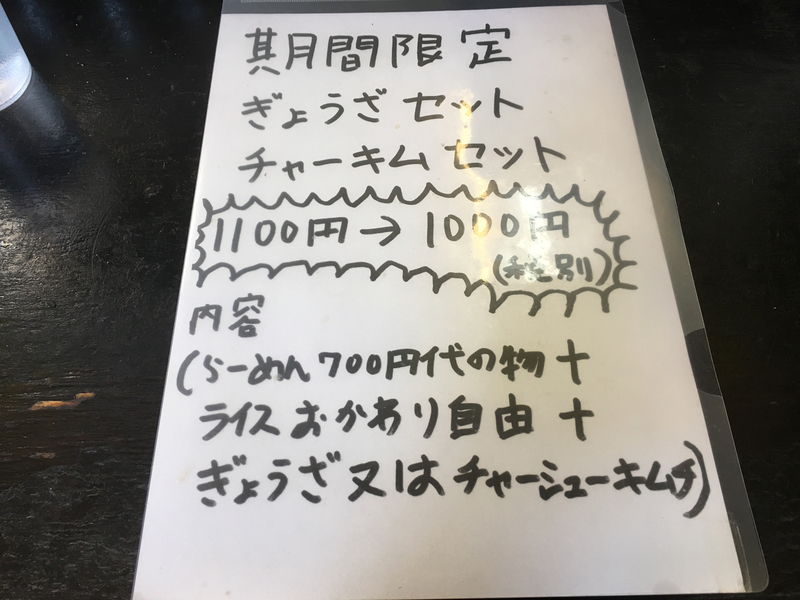 期間限定
ぎょうざ セット
チャーキム セット
1100円→1000円
(税別)
内容
(らーめん700円代の物+
ライスおかわり自由+
ぎょうざ又はチャーシューキムチ)